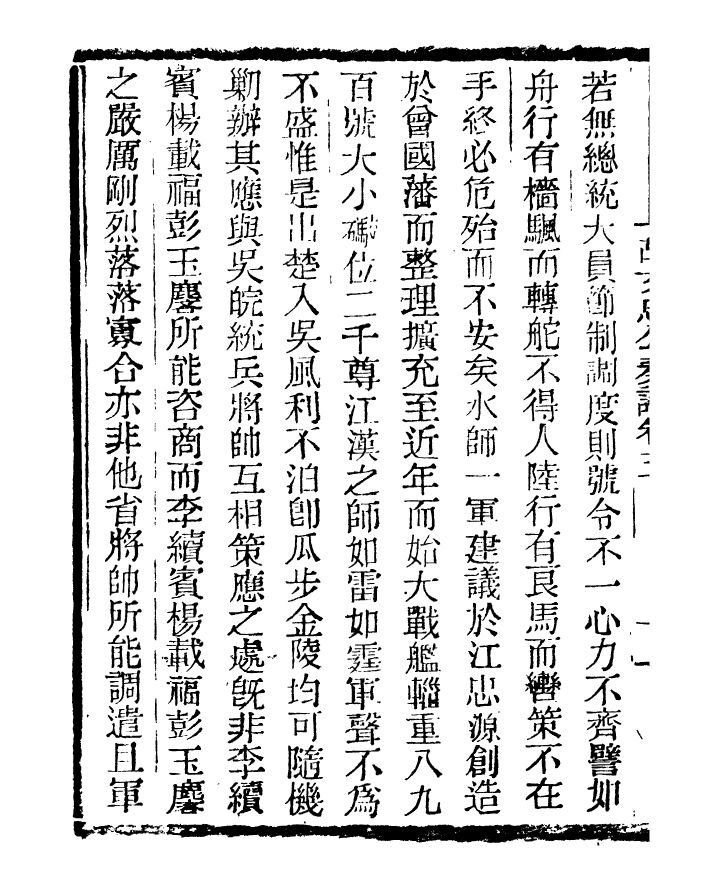 若無總統大員節制調度則號令不一心力不齊譬如
舟行有檣颿而轉舵不得人陸行有良馬而轡策不在
手終必危殆而不安矣水師一軍建議於江忠源創造
於曾國藩而整理擴充至近年而始大戰艦輜重八九
百號大小礮位二千尊江漢之師如雷如霆軍聲不爲
不盛惟是出楚入吳風利不泊卽瓜步金陵均可隨機
勦辦其應與吳皖統兵將帥互相策應之處旣非李續
賓楊載福彭玉麐所能咨商而李續賓楊載福彭玉麐
之嚴厲剛烈落落寡合亦非他省將帥所能調遣且軍